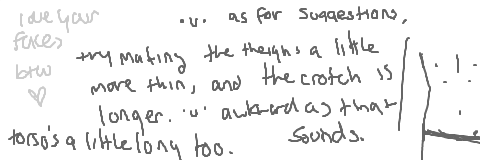 I love your
faces
btw
♡
·u· as for suggestions,
try making the theighs a little
more thin, and the crotch is
longer. ·u· awkard as that
sounds.
torso's a little long too.